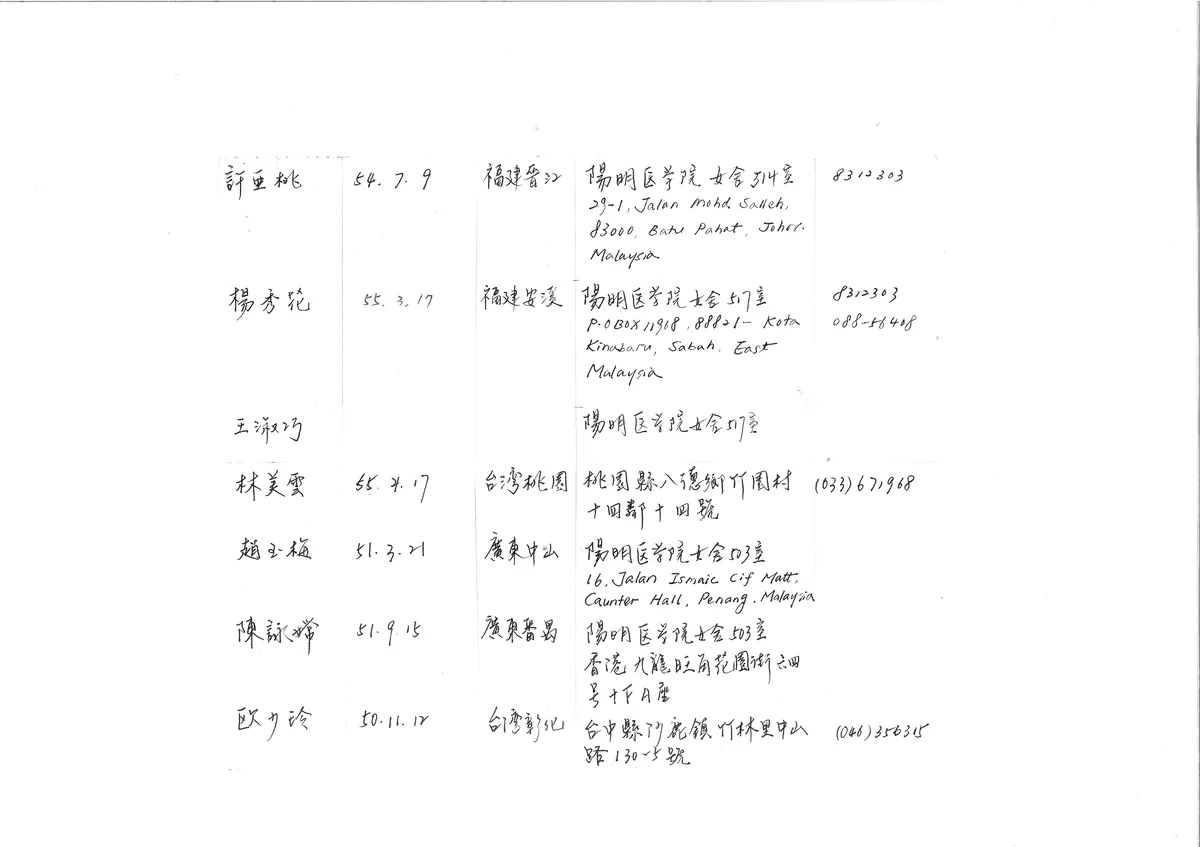 許亜桃 54.7.9 福建晋江 陽明医学院女舍514室 8312303
29-1, Jalan Mohd Salleh,
83000, Batu Pahat, Johor.
Malaysia
楊秀苑 55.3.17 福建安溪 陽明医学院女舍517室 8312303
P.O BOX 11968, 88821- Kota 088-56408
Kinabaru, Sabah, East
Malaysia
王淑巧 陽明医学院女舍517室
林美雲 55.4.17 台湾桃園 桃園縣八德鄉竹園村 (033)671968
十四鄰十四號
趙玉梅 51.3.21 廣東中山 陽明医学院女舍503室
16, Jalan Ismaic Cif Matt,
Caunter Hall, Penang. Malaysia
陳詠嫦 51.9.15 廣東番禺 陽明医学院女舍503室
香港九龍旺角花園街六四
号十F A座
欧少玲 50.11.12 台湾彰化 台中縣沙鹿鎮竹林里中山 (046)356315
路130~5號